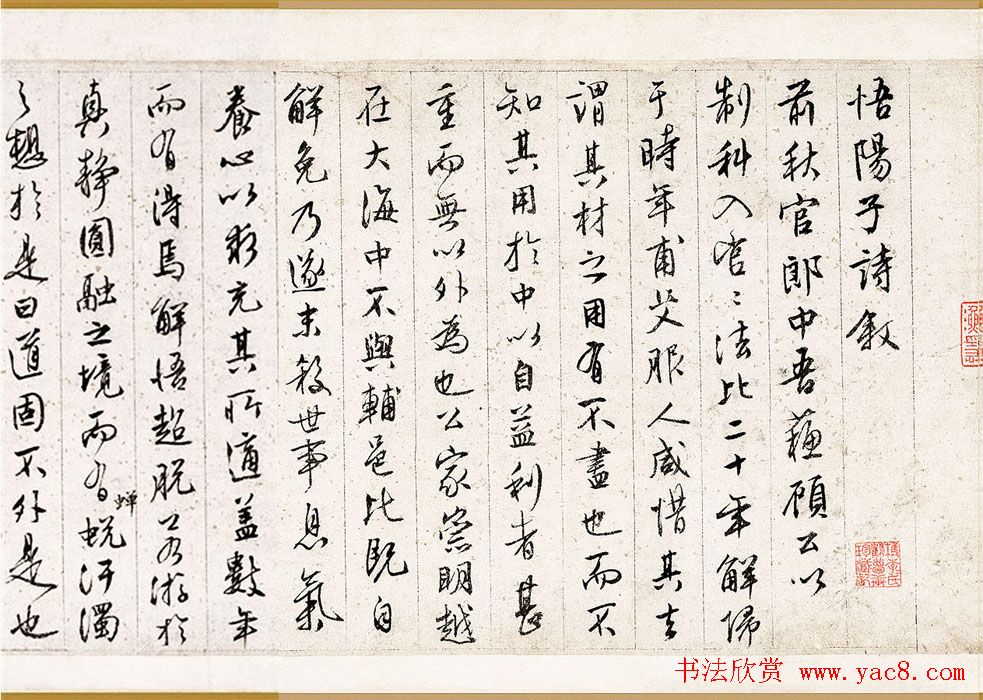 悟陽子詩敘
前秋官郎中吾蘇顧公以
制科入官官法比二十年解歸
于時年甫艾服人咸惜其去
謂其材之用有不盡也而不
知其用於中以自益利者甚
重而無以外為也公家崇明越
在大海中不與輔邑比既自
解免乃遂末殺世事息氣
養心以求充其所適蓋數年
而有得焉解悟超脫若游於
真靜圓融之境而有蟬蛻汙濁
之想於是曰道固不外是也
书法欣赏 www.yac8.com